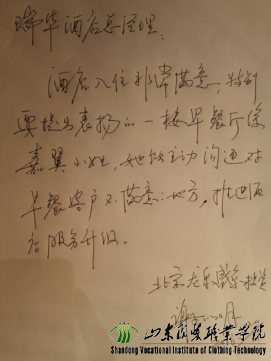 瑞华酒店总经理:
酒店入住非常满意,特别
要提出表扬的一楼早餐厅徐
嘉翼小姐,她能主动沟通对
早餐客户不满意的地方,推进酒
店服务升级。
北京
山东服装职业学院
Shandong Vocational Institute of Clothing Technology